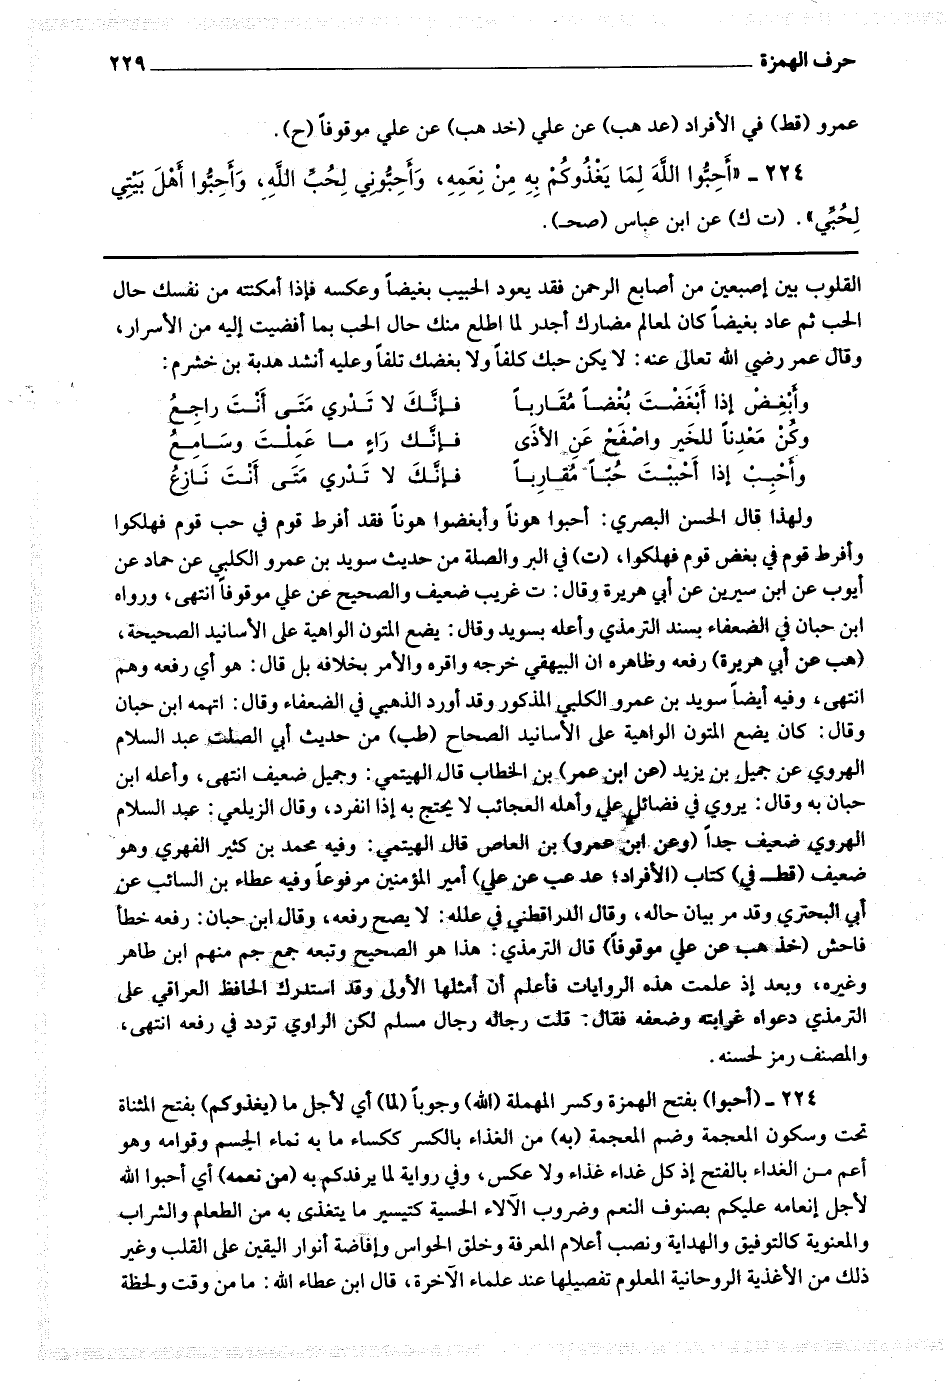 حرف الهمزة ٢٢٩
عمرو (قط) في الأفراد (عد هب) عن علي (خد هب) عن علي موقوفاً (ح).
٢٢٤ ـ «أَحِبُّوا اللَّهَ لِمَا يَغْذُوكُمْ بِهِ مِنْ نِعَمِهِ، وَأَحِبُّونِي لِحُبِّ اللَّهِ، وَأَحِبُّوا أَهْلَ بَيْتِي
لِحُبِّي». (ت ك) عن ابن عباس (صحـ).
القلوب بين إصبعين من أصابع الرحمن فقد يعود الحبيب بغيضاً وعكسه فإذا أمكنته من نفسك حال
الحب ثم عاد بغيضاً كان لمعالم مضارك أجدر لما اطلع منك حال الحب بما أفضيت إليه من الأسرار،
وقال عمر رضي الله تعالى عنه: لا يكن حبك كلفاً ولا بغضك تلفاً وعليه أنشد هدبة بن خشرم:
وأَبْغِضْ إذا أَبْغَضْتَ بُغْضاً مُقَارباً فـإنَّـكَ لا تَـدْري مَتَـى أنْـتَ راجِـعُ
وكُنْ مَعْدِناً للخَيرِ واصْفَحْ عَنِ الأذَى فـإنَّـك رَاءٍ مـا عَمِلْـتَ وسَـامِـعُ
وأَحْبِبْ إذا أَحْبَبْتَ حُبّـاً مُقَـارِبـاً فـإنَّـكَ لا تَـدْرِي مَتَـى أَنْـتَ نَـازِعُ
ولهذا قال الحسن البصري: أحبوا هوناً وأبغضوا هوناً فقد أفرط قوم في حب قوم فهلكوا
وأفرط قوم في بغض قوم فهلكوا، (ت) في البر والصلة من حديث سويد بن عمرو الكلبي عن حماد عن
أيوب عن ابن سيرين عن أبي هريرة وقال: ت غريب ضعيف والصحيح عن علي موقوفاً انتهى، ورواه
ابن حبان في الضعفاء بسند الترمذي وأعله بسويد وقال: يضع المتون الواهية على الأسانيد الصحيحة،
(هب عن أبي هريرة) رفعه وظاهره ان البيهقي خرجه واقره والأمر بخلافه بل قال: هو أي رفعه وهم
انتهى، وفيه أيضاً سويد بن عمرو الكلبي المذكور وقد أورد الذهبي في الضعفاء وقال: اتهمه ابن حبان
وقال: كان يضع المتون الواهية على الأسانيد الصحاح (طب) من حديث أبي الصلت عبد السلام
الهروي عن جميل بن يزيد (عن ابن عمر) بن الخطاب قال الهيتمي: وجميل ضعيف انتهى، وأعله ابن
حبان به وقال: يروي في فضائل علي وأهله العجائب لا يحتج به إذا انفرد، وقال الزيلعي: عبد السلام
الهروي ضعيف جداً (وعن ابن عمرو) بن العاص قال الهيتمي: وفيه محمد بن كثير الفهري وهو
ضعيف (قطـ في) كتاب (الأفراد؛ عد عب عن علي) أمير المؤمنين مرفوعاً وفيه عطاء بن السائب عن
أبي البحتري وقد مر بيان حاله، وقال الدراقطني في علله: لا يصح رفعه، وقال ابن حبان: رفعه خطأ
فاحش (خذ هب عن علي موقوفاً) قال الترمذي: هذا هو الصحيح وتبعه جمع جم منهم ابن طاهر
وغيره، وبعد إذ علمت هذه الروايات فأعلم أن أمثلها الأولى وقد استدرك الحافظ العراقي على
الترمذي دعواه غرابته وضعفه فقال: قلت رجاله رجال مسلم لكن الراوي تردد في رفعه انتهى،
والمصنف رمز لحسنه.
٢٢٤ ـ (أحبوا) بفتح الهمزة وكسر المهملة (الله) وجوباً (لما) أي لأجل ما (يغذوكم) بفتح المثناة
تحت وسكون المعجمة وضم المعجمة (به) من الغذاء بالكسر ككساء ما به نماء الجسم وقوامه وهو
أعم مـن الغداء بالفتح إذ كل غداء غذاء ولا عكس، وفي رواية لما يرفدكم به (من نعمه) أي أحبوا الله
لأجل إنعامه عليكم بصنوف النعم وضروب الآلاء الحسية كتيسير ما يتغذى به من الطعام والشراب
والمعنوية كالتوفيق والهداية ونصب أعلام المعرفة وخلق الحواس وإفاضة أنوار اليقين على القلب وغير
ذلك من الأغذية الروحانية المعلوم تفصيلها عند علماء الآخرة، قال ابن عطاء الله: ما من وقت ولحظة